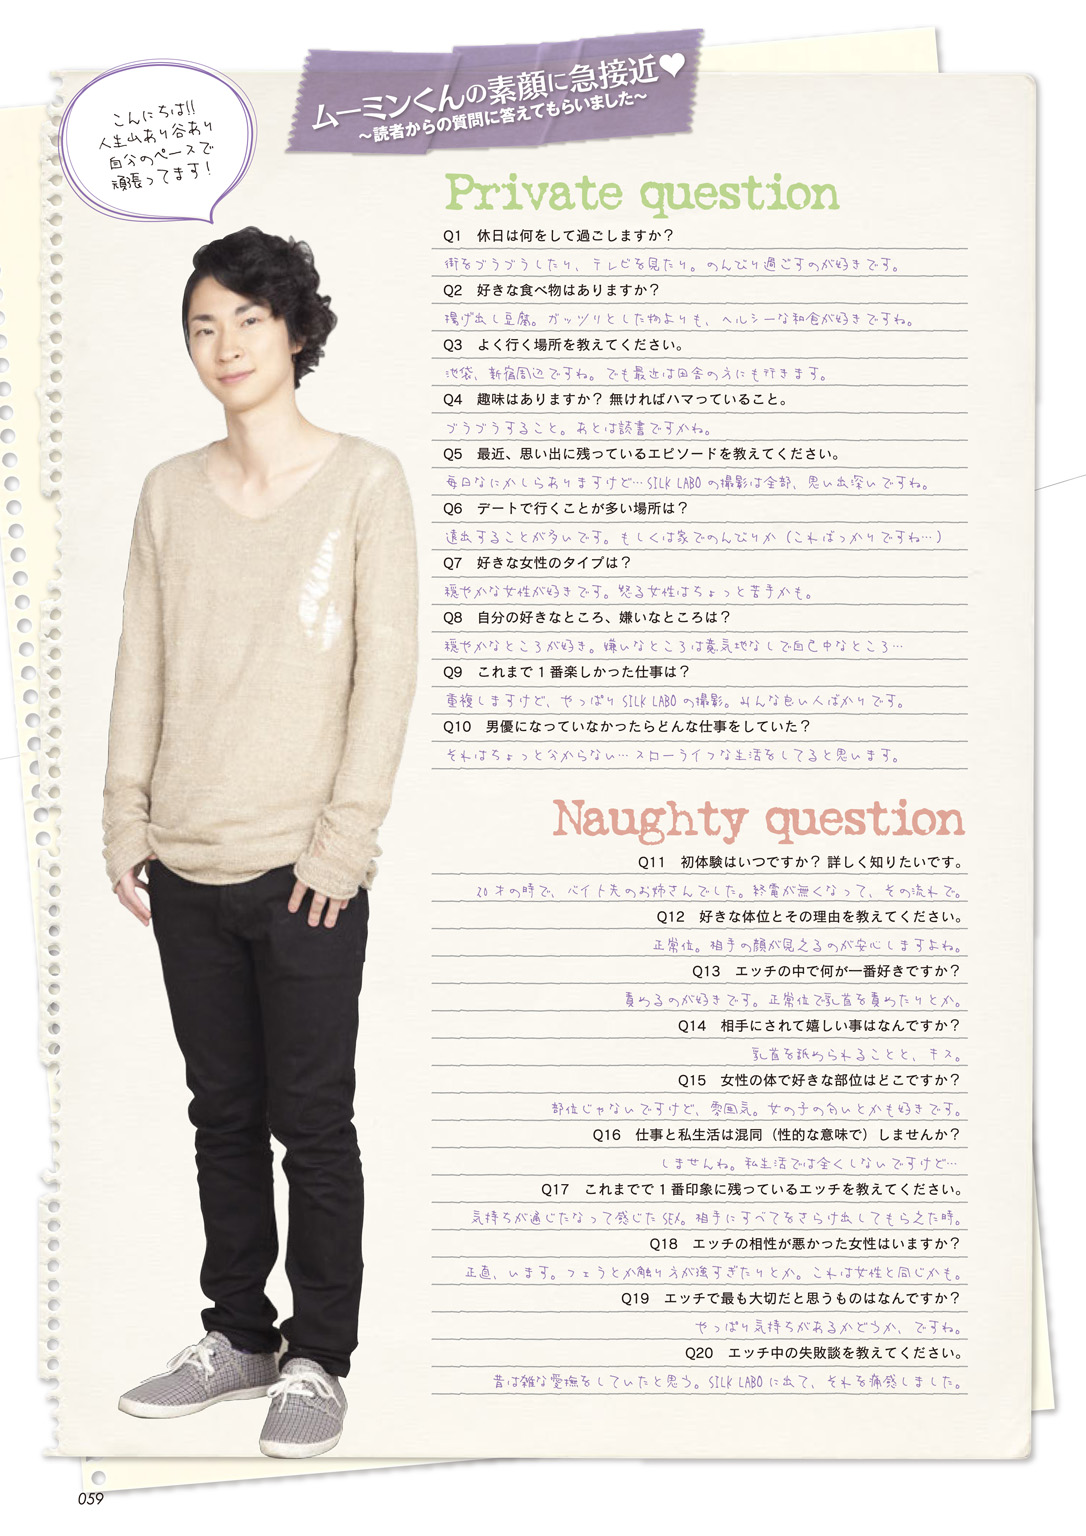 ムーミンくんの素顔に急接近♥
〜読者からの質問に答えてもらいました〜
こんにちは!!
人生山あり谷あり
自分のペースで
頑張ってます!
Private question
Q1 休日は何をして過ごしますか？
街をブラブラしたり、テレビを見たり。のんびり過ごすのが好きです。
Q2 好きな食べ物はありますか？
揚げ出し豆腐。ガッツリとした物よりも、ヘルシーな和食が好きですね。
Q3 よく行く場所を教えてください。
池袋、新宿周辺ですね。でも最近は田舎の方にも行きます。
Q4 趣味はありますか？ 無ければハマっていること。
ブラブラすること。あとは読書ですかね。
Q5 最近、思い出に残っているエピソードを教えてください。
毎日なにかしらありますけど…SILK LABOの撮影は全部、思い出深いですね。
Q6 デートで行くことが多い場所は？
遠出することが多いです。もしくは家でのんびりか（こればっかりですね…）
Q7 好きな女性のタイプは？
穏やかな女性が好きです。怒る女性はちょっと苦手かも。
Q8 自分の好きなところ、嫌いなところは？
穏やかなところが好き。嫌いなところは意気地なしで自己中なところ…
Q9 これまで1番楽しかった仕事は？
重複しますけど、やっぱりSILK LABOの撮影。みんな良い人ばかりです。
Q10 男優になっていなかったらどんな仕事をしていた？
それはちょっと分からない…スローライフな生活をしてると思います。
Naughty question
Q11 初体験はいつですか？ 詳しく知りたいです。
20才の時で、バイト先のお姉さんでした。終電が無くなって、その流れで。
Q12 好きな体位とその理由を教えてください。
正常位。相手の顔が見えるのが安心しますよね。
Q13 エッチの中で何が一番好きですか？
責めるのが好きです。正常位で乳首を責めたりとか。
Q14 相手にされて嬉しい事はなんですか？
乳首を舐められることと、キス。
Q15 女性の体で好きな部位はどこですか？
部位じゃないですけど、雰囲気。女の子の匂いとかも好きです。
Q16 仕事と私生活は混同（性的な意味で）しませんか？
しませんね。私生活では全くしないですけど…
Q17 これまでで1番印象に残っているエッチを教えてください。
気持ちが通じたなって感じたSEX。相手にすべてをさらけ出してもらえた時。
Q18 エッチの相性が悪かった女性はいますか？
正直、います。フェラとか触り方が強すぎたりとか。これは女性と同じかも。
Q19 エッチで最も大切だと思うものはなんですか？
やっぱり気持ちがあるかどうか、ですね。
Q20 エッチ中の失敗談を教えてください。
昔は雑な愛撫をしていたと思う。SILK LABOに出て、それを痛感しました。
059